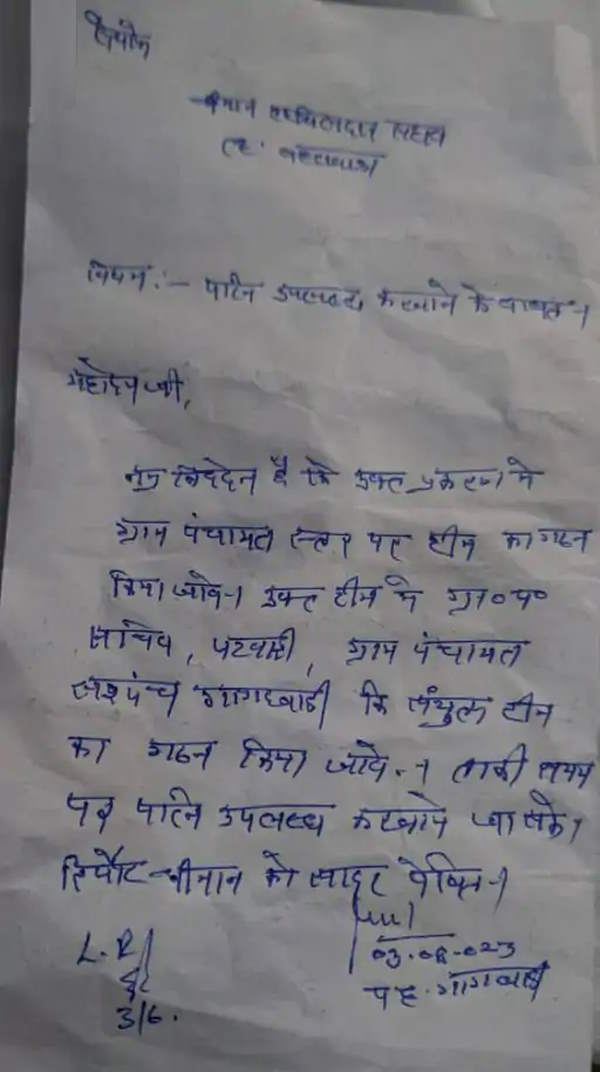 श्रीमान तहसीलदार महोदय
विषय:- पानि उपलब्ध करवाने के बाबत।
महोदय जी,
नम्र निवेदन है कि उक्त प्रकरण मे
ग्राम पंचायत स्तर पर टीम का गठन
किया जावे। उक्त टीम मे ग्रा०पं०
सचिव, पटवारी, ग्राम पंचायत
सरपंच कि संयुक्त टीम
का गठन किया जावे। ताकी समय
पर पानि उपलब्ध करवाये जा सके।
रिपोर्ट श्रीमान को सादर प्रेषित।
L.R
3/6.